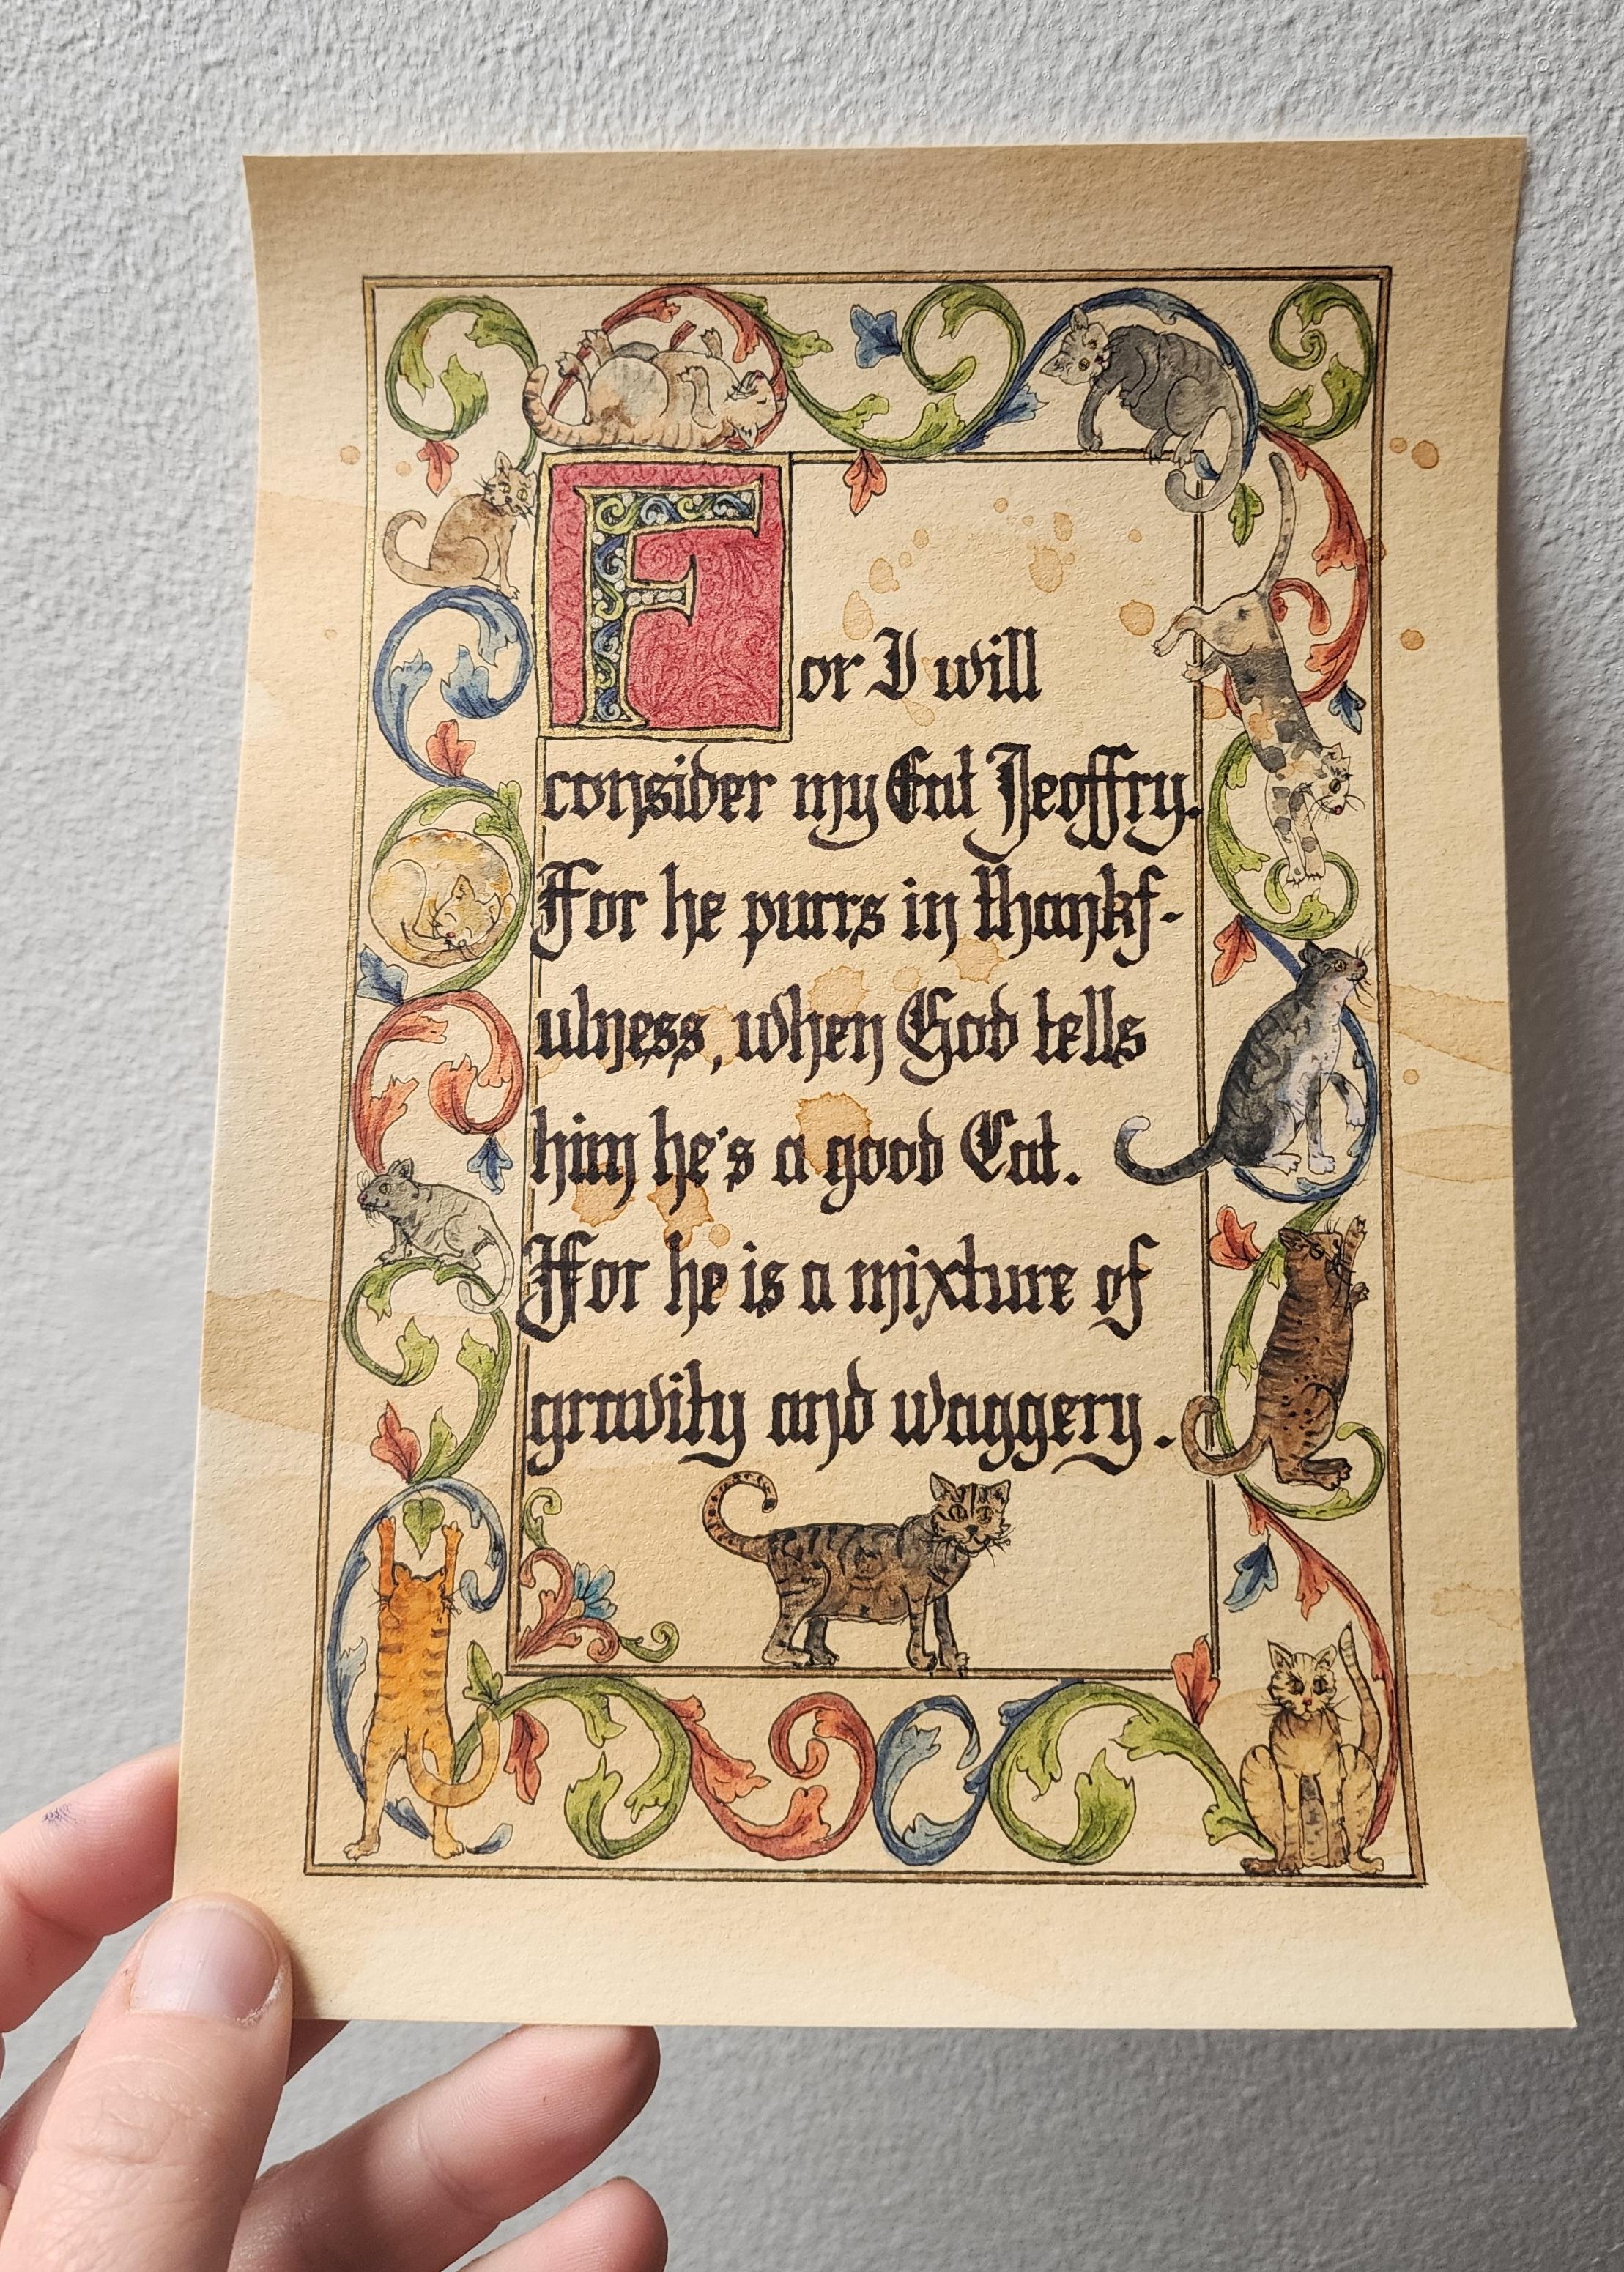 For I will
consider my Cat Jeoffry.
For he purrs in thankf-
ulness, when God tells
him he's a good Cat.
For he is a mixture of
gravity and waggery.